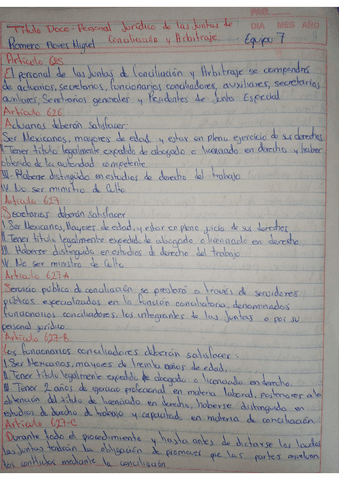 PAG.
DIA MES AÑO
Titulo Doce- Personal Jurídico de las Juntas de
Conciliación y Arbitraje.
Romero Flores Miguel
Equipo 7
Artículo 625
El personal de las Juntas de Conciliación y Arbitraje se compondrá
de actuarios, secretarios, funcionarios conciliadores, auxiliares, secretarios
auxiliares, Secretarios generales y Presidentes de Junta Especial
Artículo 626
Actuarios deberán satisfacer:
I Ser Mexicanos, mayores de edad y estar en pleno ejercicio de sus derechos
II Tener título legalmente expedido de abogado o licenciado en derecho y haber
obtenido de la autoridad competente
III. Haberse distinguido en estudios de derecho del trabajo
IV. No ser ministro de Culto
Artículo 627
Secretarios deberán satisfacer
I Ser Mexicanos, Mayores de edad, y estar en pleno juicio de sus derechos
II. Tener título legalmente expedido de abogado o licenciado en derecho
III. Haberse distinguido en estudios de derecho del trabajo
IV. No ser ministro de culto
Artículo 627-A
Servicio público de conciliación se prestará a través de servidores
públicos especializados en la función conciliatoria, denominados
funcionarios conciliadores, los integrantes de las Juntas o por su
personal jurídico.
Artículo 627-B
Los funcionarios conciliadores deberán satisfacer:
I Ser Mexicanos, mayores de treinta años de edad.
II. Tener título legalmente expedido de abogado o licenciado en derecho.
III. Tener 2 años de ejercicio profesional en materia laboral, posteriores a la
obtención del título de licenciado en derecho, haberse distinguido en
estudios de derecho de trabajo y capacitado en materia de conciliación
Artículo 627-C
Durante todo el procedimiento y hasta antes de dictarse los laudos
las Juntas tendrán la obligación de promover que las partes resuelvan
los conflictos mediante la conciliación.